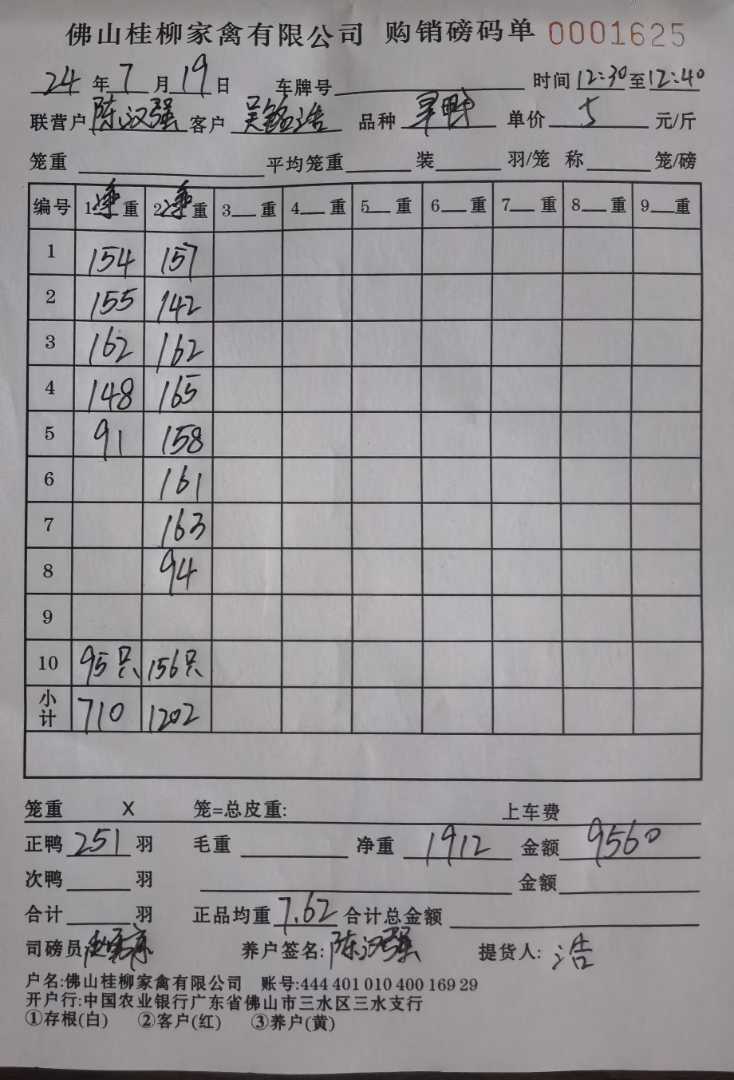 佛山桂柳家禽有限公司 购销磅码单 0001625
24年7月19日 车牌号 时间12:30至12:40
联营户陈汉强 客户吴铭浩 品种 单价5元/斤
笼重 平均笼重 装 羽/笼 称 笼/磅
编号 1净重 2净重 3 重 4 重 5 重 6 重 7 重 8 重 9 重
1 154 157
2 155 142
3 162 162
4 148 165
5 91 158
6 161
7 163
8 94
9
10 95只 156只
小计 710 1202
笼重 X 笼=总皮重: 上车费
正鸭251羽 毛重 净重1912 金额9560
次鸭 羽 金额
合计 羽 正品均重7.62 合计总金额
司磅员: 养户签名:陈汉强 提货人:浩
户名:佛山桂柳家禽有限公司 账号:444 401 010 400 169 29
开户行:中国农业银行广东省佛山市三水区三水支行
①存根(白) ②客户(红) ③养户(黄)